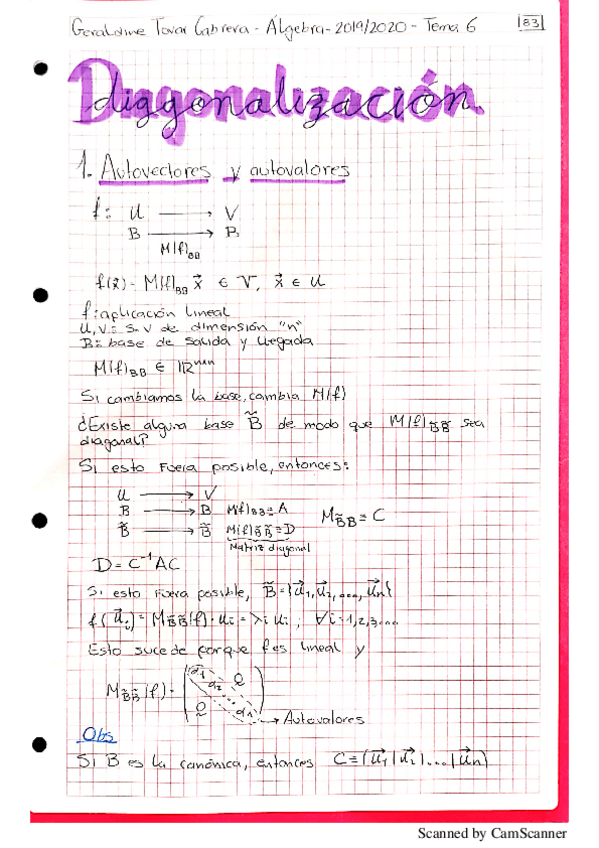 Geraldine Tovar Cabrera - Álgebra - 2019/2020 - Tema 6
83
Diagonalización.
1. Autovectores y autovalores
f: U → V
B → B
M(f)BB
f(x⃗) = M(f)BB x⃗ ∈ V, x⃗ ∈ U
f: aplicación lineal
U, V = s.v de dimensión "n"
B = base de salida y llegada
M(f)BB ∈ ℝⁿˣⁿ
Si cambiamos la base, cambia M(f)
¿Existe alguna base B̃ de modo que M(f)B̃B̃ sea
diagonal?
Si esto fuera posible, entonces:
U → V
B → B M(f)BB = A
B̃ → B̃ M(f)B̃B̃ = D
MB̃B = C
Matriz diagonal
D = C⁻¹AC
Si esto fuera posible, B̃ = {u⃗1, u⃗2, ..., u⃗n}
f(u⃗i) = MB̃B̃(f) · ui = λi ui, ∀i = 1,2,3...
Esto sucede porque f es lineal y
MB̃B̃(f) = (d1 d2 ... dn) 0 0
→ Autovalores
Obs
Si B es la canónica, entonces C = (u⃗1 | u⃗i | ... | u⃗n)
Scanned by CamScanner